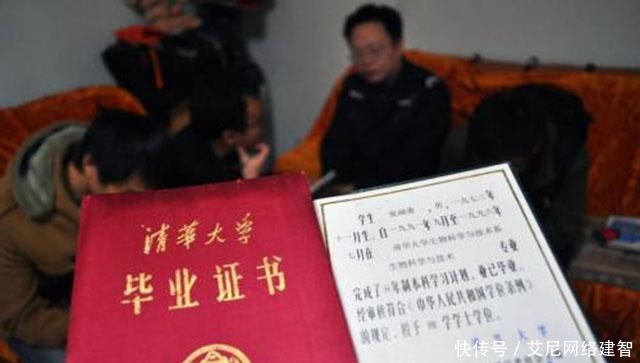 清华大学
毕业证书
学生 男,一九七三年
十一月生,自一九九一年九月至一九九六年
七月在 清华大学生物科学与技术系
生物科学与技术 专业
完成了 年制本科学习计划,业已毕业。
经审核符合《中华人民共和国学位条例》
的规定,授予 学学士学位。
大学
快传号/艾尼网络建智